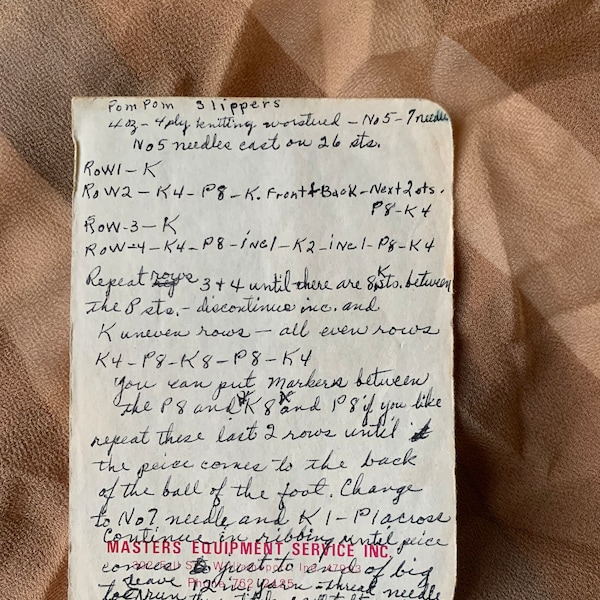 Pom Pom Slippers
4 oz - 4 ply knitting worsturd - No 5 - 7 needles
No 5 needles cast on 26 sts.
Row 1 - K
Row 2 - K4 - P8 - K. Front & Back - Next 2 sts.
P8 - K4
Row - 3 - K
Row - 4 - K4 - P8 - inc 1 - K2 - inc 1 - P8 - K4
Repeat rows 3 + 4 until there are 8 K sts. between
the P sts. - discontinue inc. and
K uneven rows - all even rows
K4 - P8 - K8 - P8 - K4
You can put markers between
the P8 and K8 and P8 if you like
repeat these last 2 rows until
the peice comes to the back
of the ball of the foot. Change
to No 7 needle and K1 - P1 across
Continue in ribbing until peice
MASTERS EQUIPMENT SERVICE INC.
comes to start of end of big
toe
Leave yarn - thread needle
run